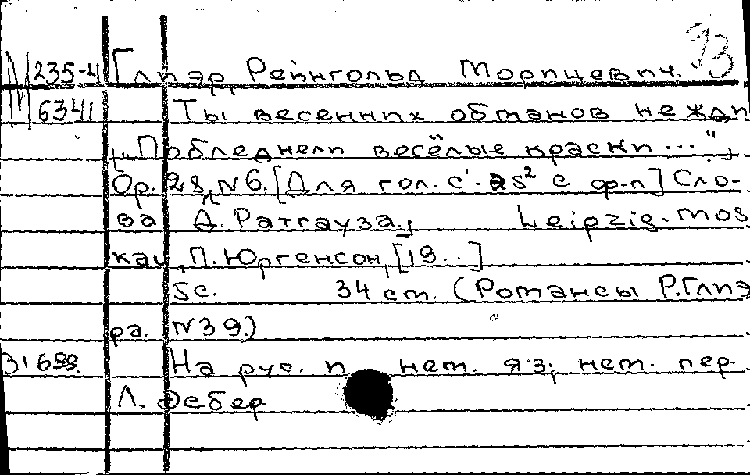 93
М 235-4 Глиэр, Рейнгольд Морицевич.
6341 Ты весенних обманов не жди
"Побледнели весёлые краски...",
Op. 28, №6. [Для гол. c'-as² с ф-п] Сло-
ва Д. Ратгауза. Leipzig-Mos
kau, П. Юргенсон, [19..]
5с. 34 ст. (Романсы Р. Глиэ
ра. №39.)
На рус. и нем. яз; нем. пер.
Л. Фебер